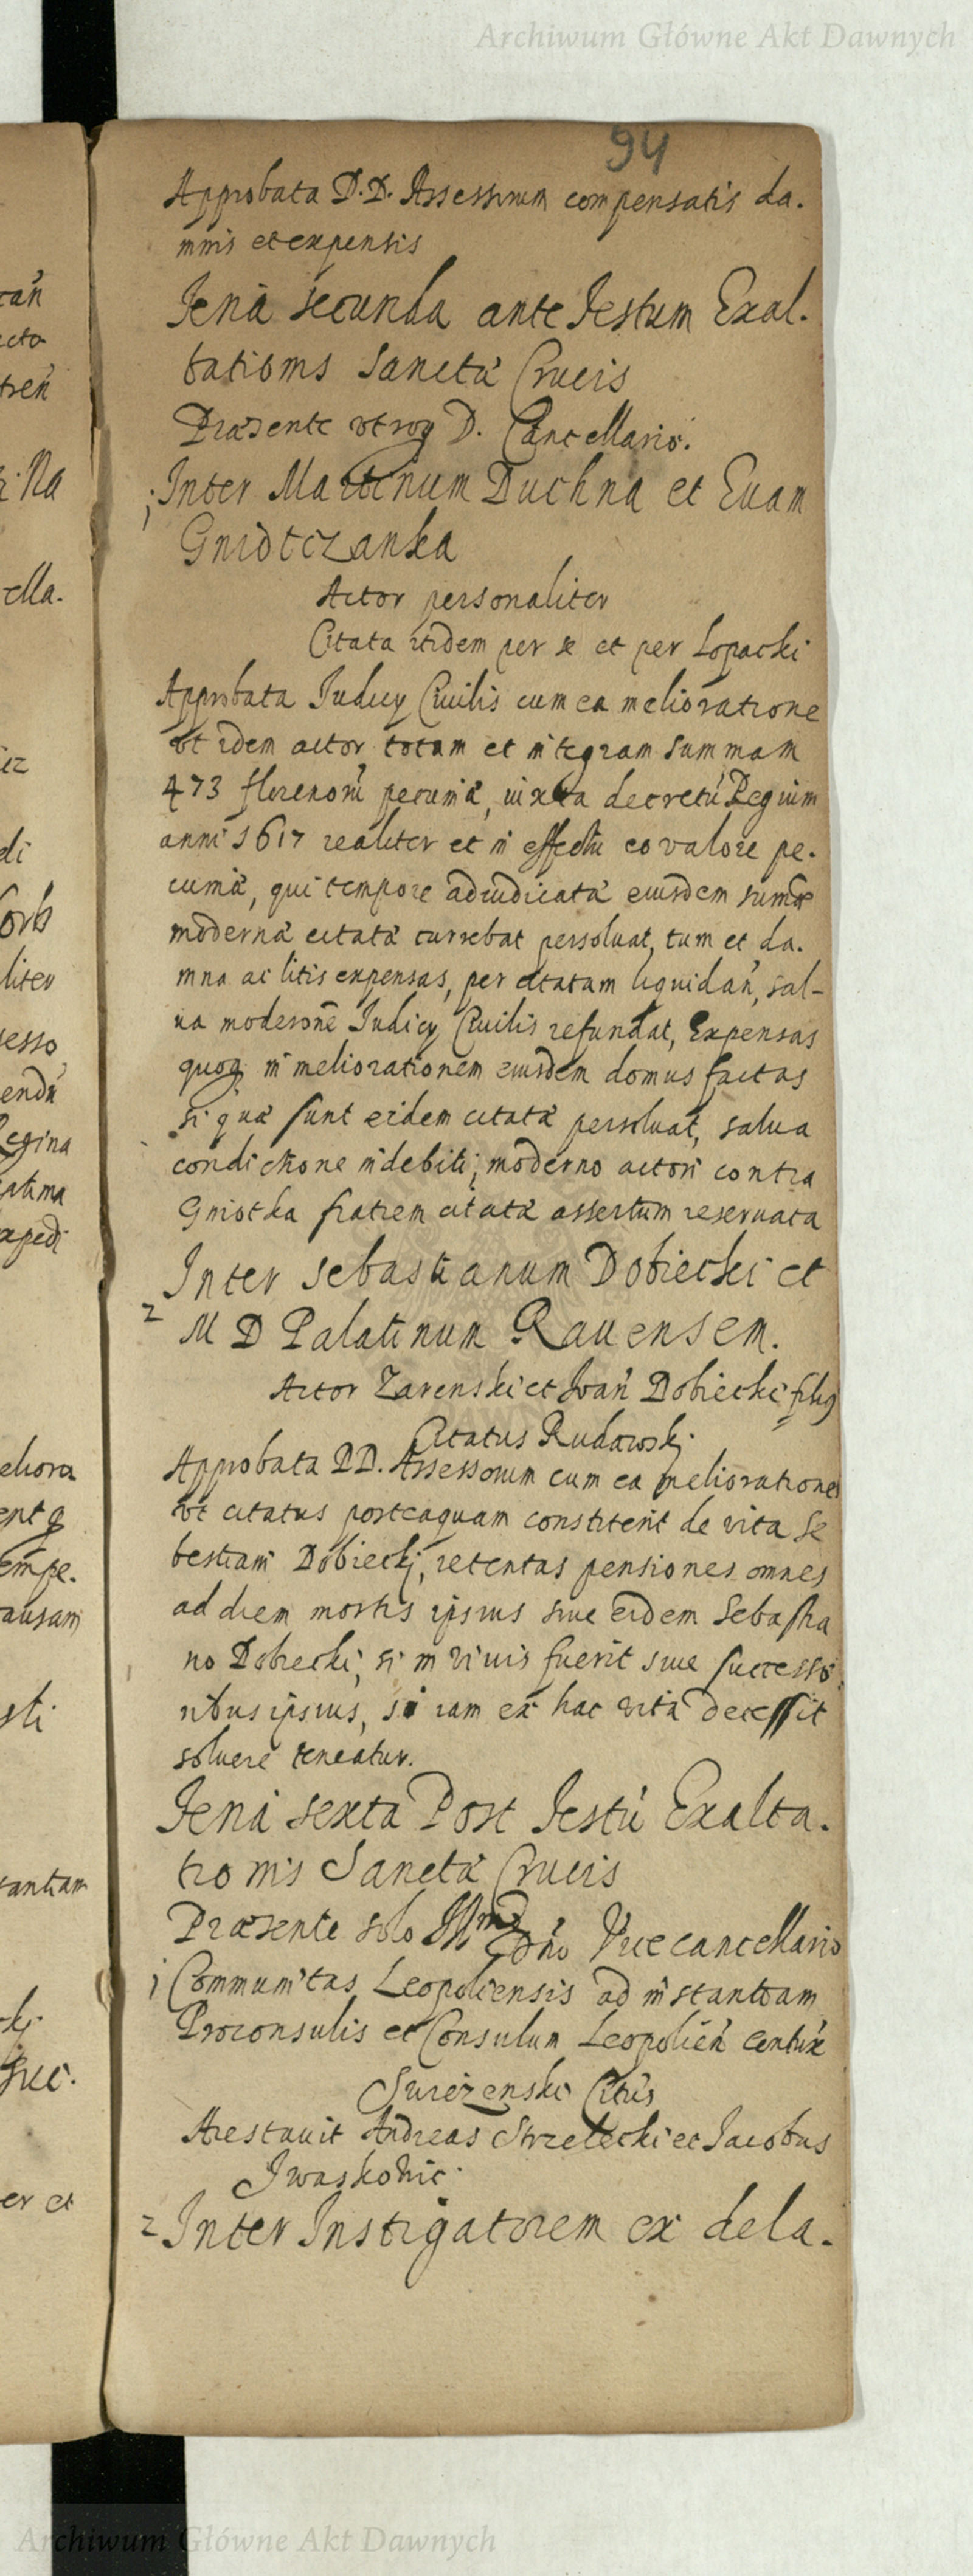 Archiwum Główne Akt Dawnych
94
Approbata D.D. Assessorum compensatis da.
mnis et expensis
Feria secunda ante Festum Exal.
tationis Sanctæ Crucis
Præsente utroq D. Cancellario.
1 Inter Martinum Duchna et Euam
Gniotczanka
Actor personaliter
Citata itidem per se et per Lopacki
Approbata Judicy Ciuilis cum ea melioratione
ut idem actor totam et integram summam
473 florenorú pecuniæ, iuxta decretú Regium
anni 1617 realiter et in effectu eo valore pe.
cuniæ, qui tempore adiudicatæ eiusdem summæ
modernæ citatæ currebat persoluat, tum et da.
mna ac litis expensas, per citatam liquidań, sal-
ua moderone Judicy Ciuilis refundat, Expensas
quoq in meliorationem eiusdem domus factas
si quæ sunt eidem citatæ persoluat, salua
condictione indebiti, moderno actori contra
Gniotka fratrem citatæ assertum reseruata
Inter Sebastianum Dobiecki et
2 M D Palatinum Rauensem.
Actor Zarenski et Joań Dobiecki filius
Citatus Rudowskj
Approbata DD. Assessorum cum ea melioratione
ut citatus posteaquam constiterit de vita Se
bestiani Dobieckj, retentas pensiones omnes
ad diem mortis ipsius siue eidem Sebastia
no Dobiecki, si in viuis fuerit siue successo
ribus ipsius, si iam ex hac vita decessit
soluere teneatur.
Feria sexta Post Festú Exalta.
tionis Sanctæ Crucis
Præsente solo Illmo Dno Vicecancellario
1 Communitas Leopoliensis ad instantiam
Proconsulis et Consulum Leopolień
Citus
Arestauit Andreas Strzelecki et Jacobus
Iwaskowic.
2 Inter Instigatorem ex dela.
cań
cto
treń
Na
cella.
di
liter
sesso
endú
Regina
expedi
eliora
empe.
causam
sti
tantiam
er et
Archiwum Główne Akt Dawnych